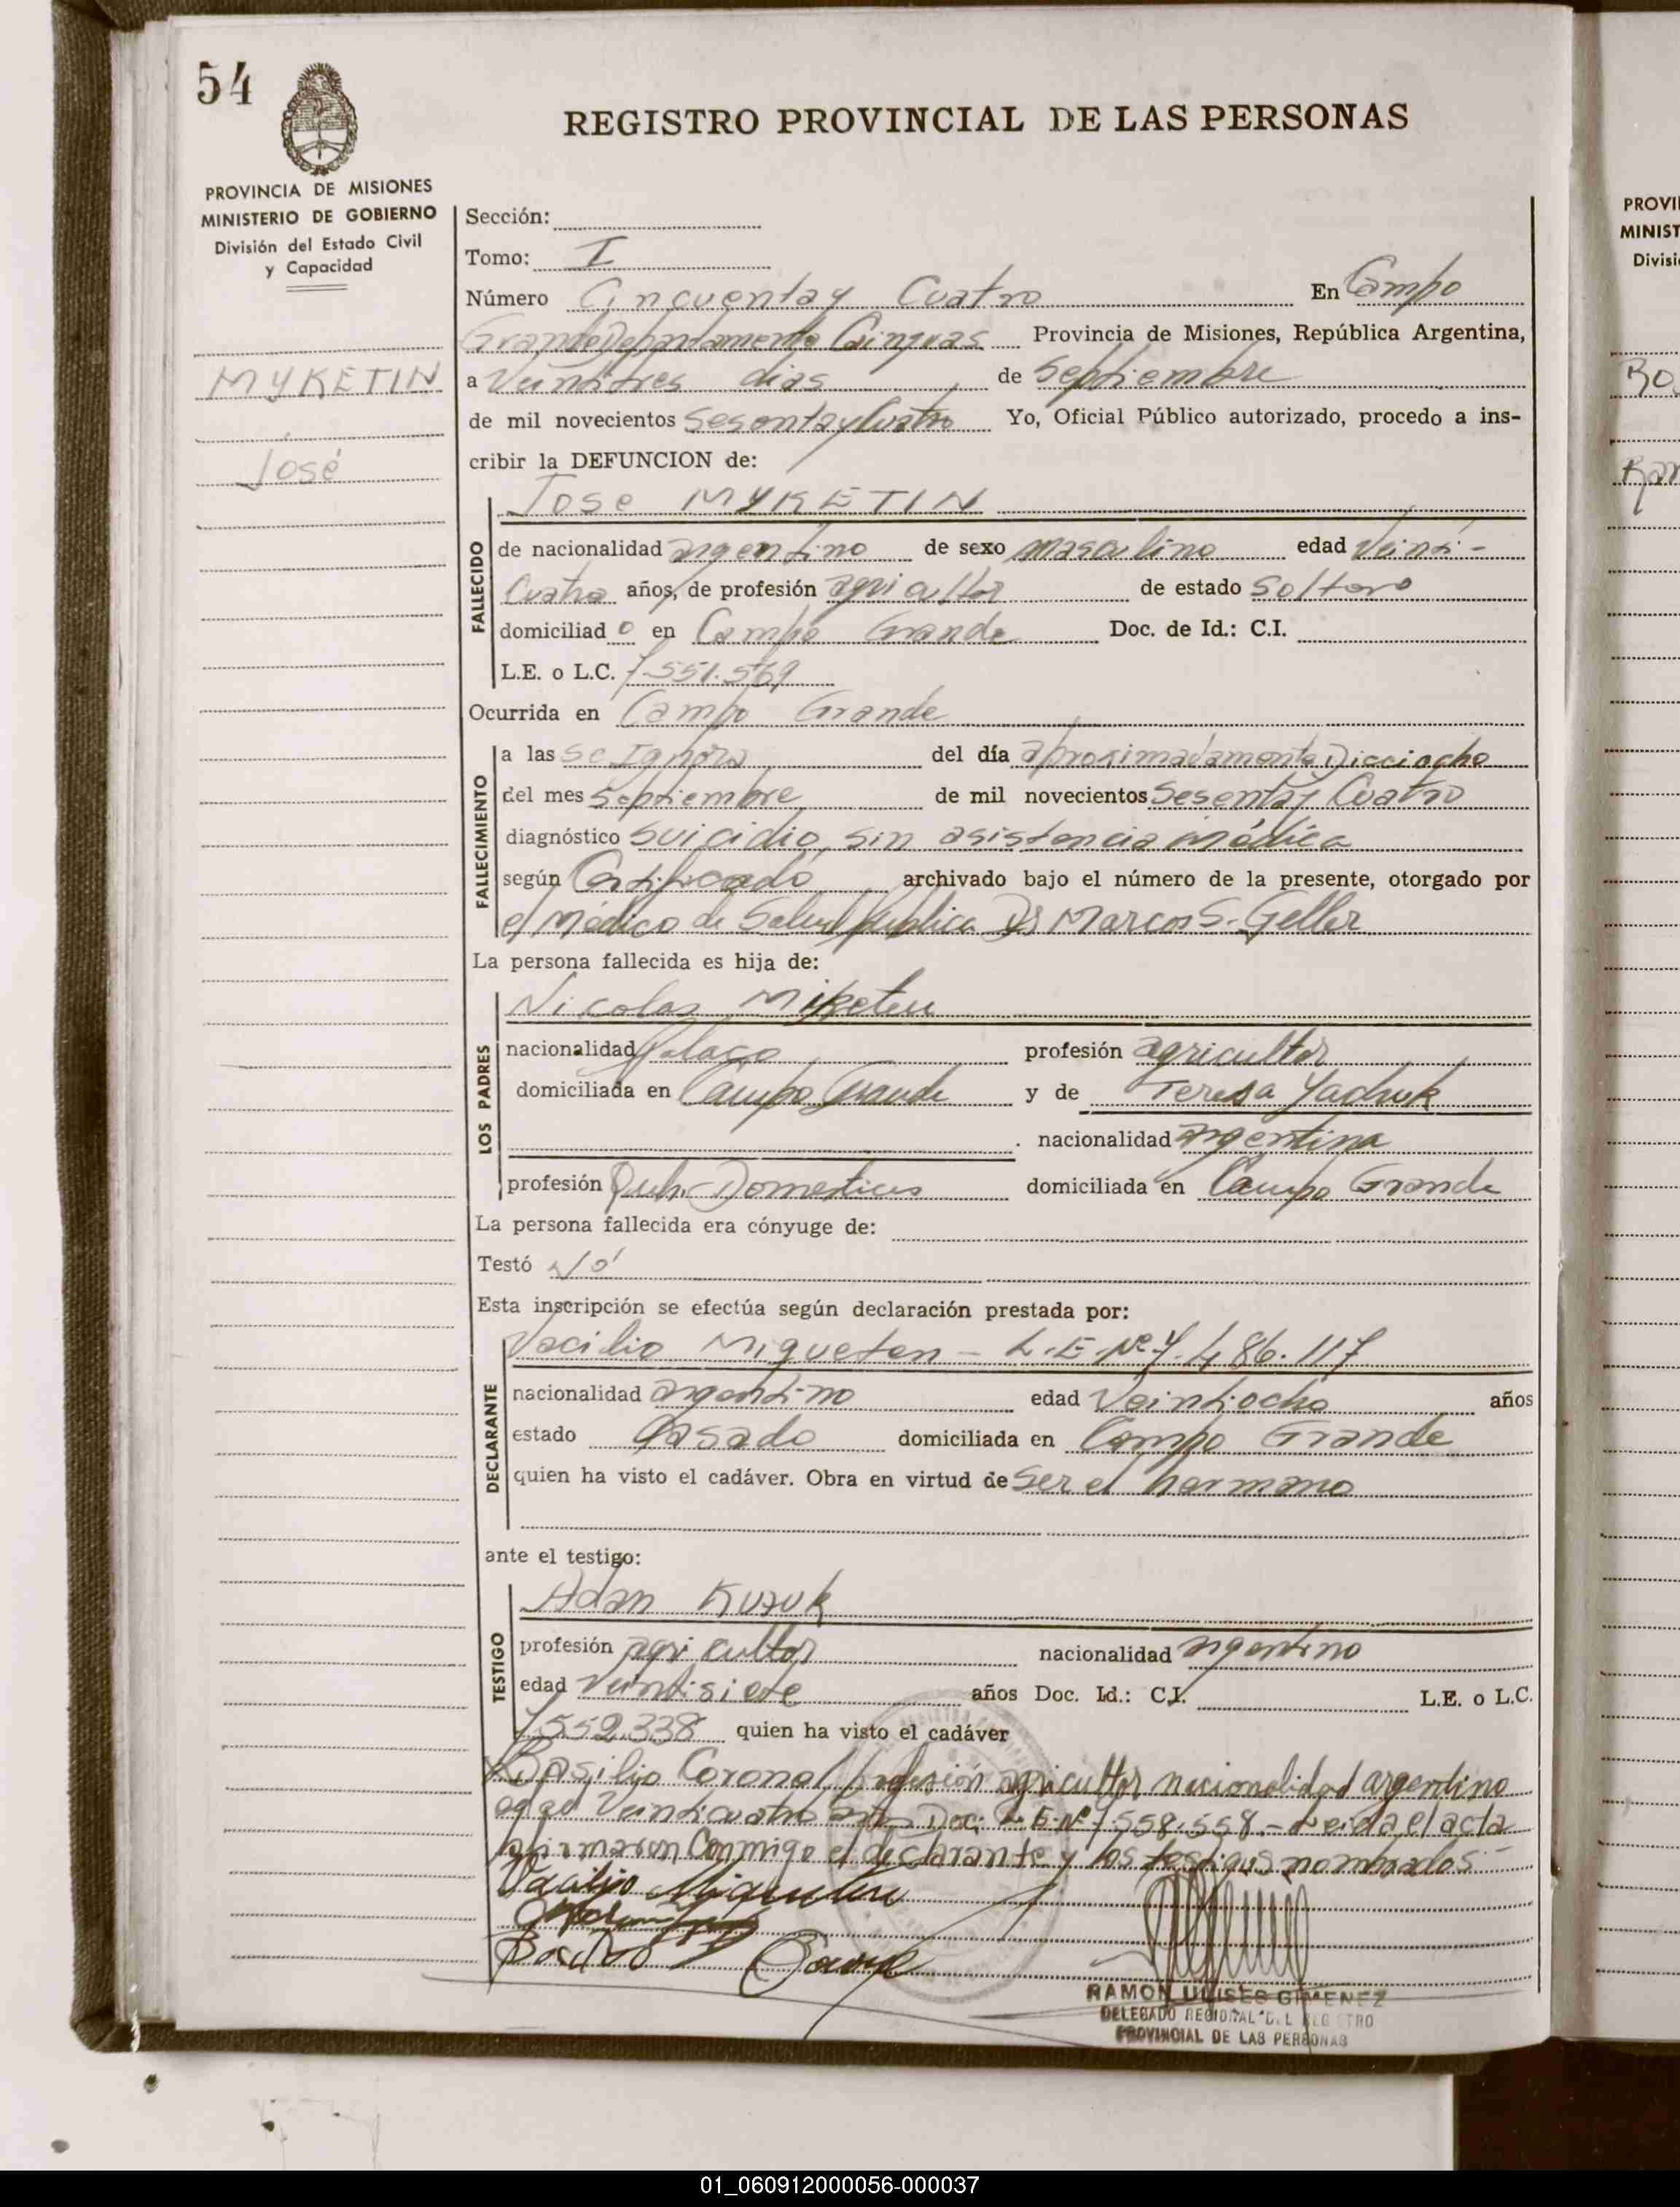 54
REGISTRO PROVINCIAL DE LAS PERSONAS
PROVINCIA DE MISIONES
MINISTERIO DE GOBIERNO
División del Estado Civil
y Capacidad
MYKETIN
José
Sección:
Tomo: I
Número Cincuenta y Cuatro En Campo
Grande Departamento Cainguas Provincia de Misiones, República Argentina,
a Veintitres dias de Septiembre
de mil novecientos Sesenta y Cuatro Yo, Oficial Público autorizado, procedo a ins-
cribir la DEFUNCION de:
Jose MYKETIN
FALLECIDO
de nacionalidad argentino de sexo masculino edad Veinti-
Cuatro años, de profesión agricultor de estado Soltero
domiciliado en Campo Grande Doc. de Id.: C.I.
L.E. o L.C. 7.551.569
Ocurrida en Campo Grande
FALLECIMIENTO
a las se Ignora del día aproximadamente Dieciocho
del mes Septiembre de mil novecientos Sesenta y Cuatro
diagnóstico Suicidio, sin asistencia médica
según Certificado archivado bajo el número de la presente, otorgado por
el médico de Salud Publica Dr Marcos S. Geller
La persona fallecida es hija de:
LOS PADRES
Nicolas Miketen
nacionalidad Polaco profesión agricultor
domiciliada en Campo Grande y de Teresa Yachuk
nacionalidad argentina
profesión Queh. Domesticos domiciliada en Campo Grande
La persona fallecida era cónyuge de:
Testó No
Esta inscripción se efectúa según declaración prestada por:
DECLARANTE
Vacilio Migueten - L.E. Nº 7.486.117
nacionalidad argentino edad Veintiocho años
estado Casado domiciliada en Campo Grande
quien ha visto el cadáver. Obra en virtud de Ser el hermano
ante el testigo:
TESTIGO
Adan Kuzuk
profesión agricultor nacionalidad argentino
edad Veintisiete años Doc. Id.: C.I. L.E. o L.C.
7.552.338 quien ha visto el cadáver
Basilio Coronel profesión agricultor nacionalidad argentino
edad Veinticuatro años Doc: L.E. Nº 7.558.558.- Leida el acta
la firmaron Conmigo el declarante y los testigos nombrados.-
Vacilio
RAMON ULISES GIMENEZ
DELEGADO REGIONAL DEL REGISTRO
PROVINCIAL DE LAS PERSONAS
PROVI
MINIST
Divisi
01_060912000056-000037